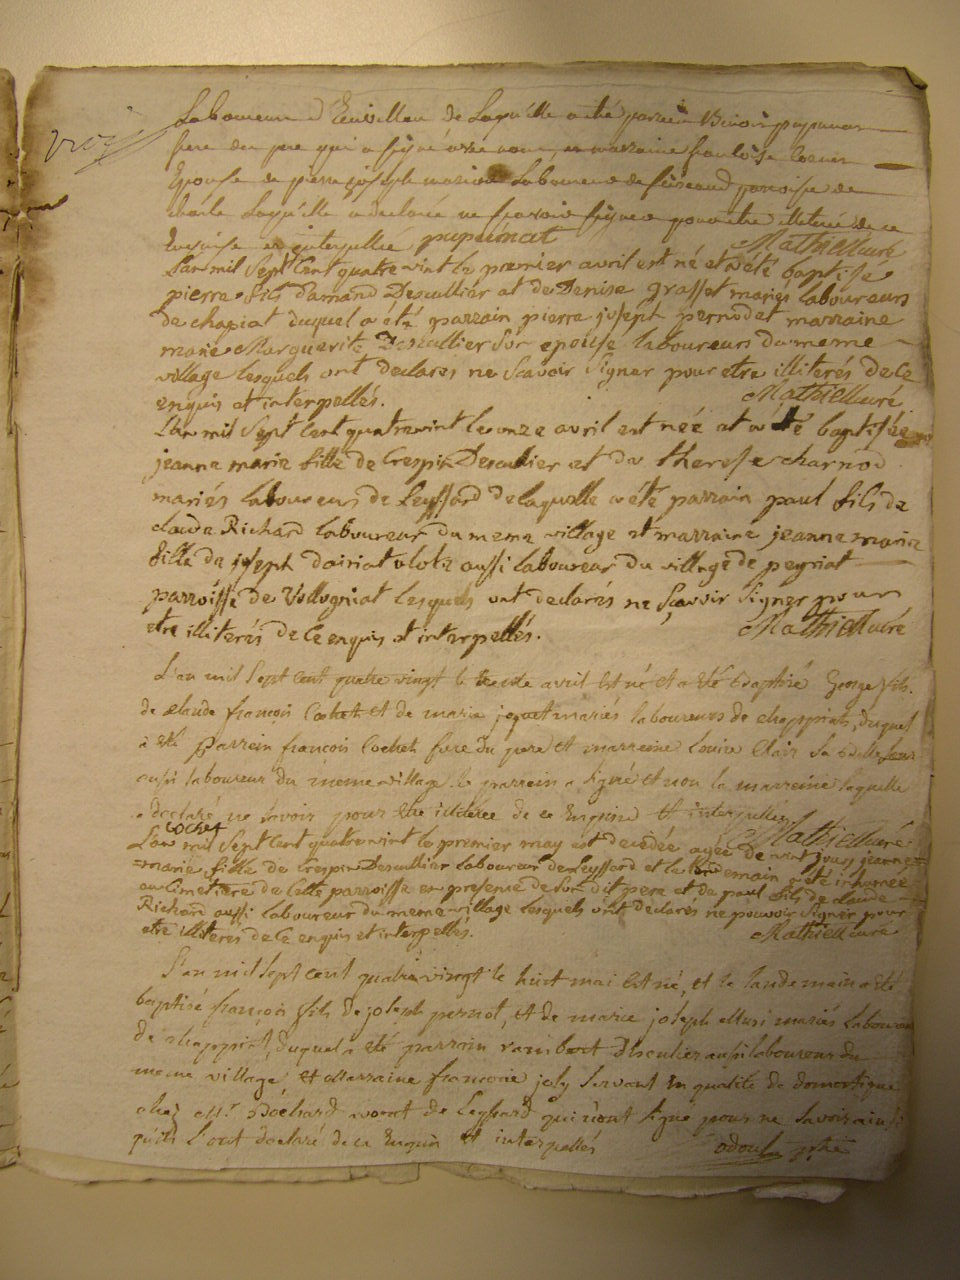 Laboureur d' de Laquelle a été parrein Benoit pupunat
frere du pere qui a signé avec nous, et marraine
Epouse de pierre joseph Laboureur de parroisse de
Laquelle a declarée ne sçavoir signer pour etre illiterée de ce
Enquise et interpellée pupunat Mathieu curé
L'an mil sept cent quatre vint le premier avril est né et a été baptise
pierre fils d'amand Descullier et de Denise grasset mariés laboureurs
de chapiat duquel a été parrain pierre josept pernod et marraine
marie Marguerite Descullier son epouse laboureurs du meme
village lesquels ont declares ne scavoir signer pour etre illiterés de ce
enquis et interpellés. Mathieu curé
L'an mil sept cent quatrevint le onze avril est née et a été baptisée
jeanne marie fille de Crespin Descullier et de therese charnod
mariés laboureurs de Leyssard de laquelle a été parrain paul fils de
claude Richard laboureur du meme village et marraine jeanne marie
fille de josept aussi laboureur du village de peyriat
parroisse de Vollogniat lesquels ont declarés ne sçavoir signer pour
etre illiterés de ce enquis et interpellés. Mathieu curé
L'an mil sept cent quatre vingt le trente avril est né et a été baptisé George fils
de claude françois Cochet et de marie jaquet mariés laboureurs de chappiat, duquel
a été parrein françois Cochet frere du pere et marreine Louise Clair sa belle soeur
aussi laboureur du meme village le parrein a signé et non la marreine laquelle
a declaré ne savoir pour etre illiterée de ce Enquise et interpellée
Cochet Mathieu curé
L'an mil sept cent quatrevint le premier may est decedée agée de vint jours jeanne
marie fille de Crespin Descullier laboureur de Leyssard et le lendemain a été inhumée
au cimetiere de cette parroisse en presence de son dit pere et de paul fils de claude
Richard aussi laboureur du meme village lesquels ont declarés ne pouvoir signer pour
etre illiteres de ce enquis et interpellés. Mathieu curé
L'an mil sept cent quatre vingt le huit mai est né, et le landemain a été
baptisé françois fils de joseph pernot, et de marie joseph mariés laboureurs
de chappiat, duquel a été parrain rambert Descullier aussi laboureur du
meme village, et marraine françoise joly servant En qualité de domestique
chez Mr. Bochard avocat de Leyssard qui n'ont signé pour ne savoir ainsi
qu'ils l'ont déclaré de ce Enquis et interpellés odoul ptre